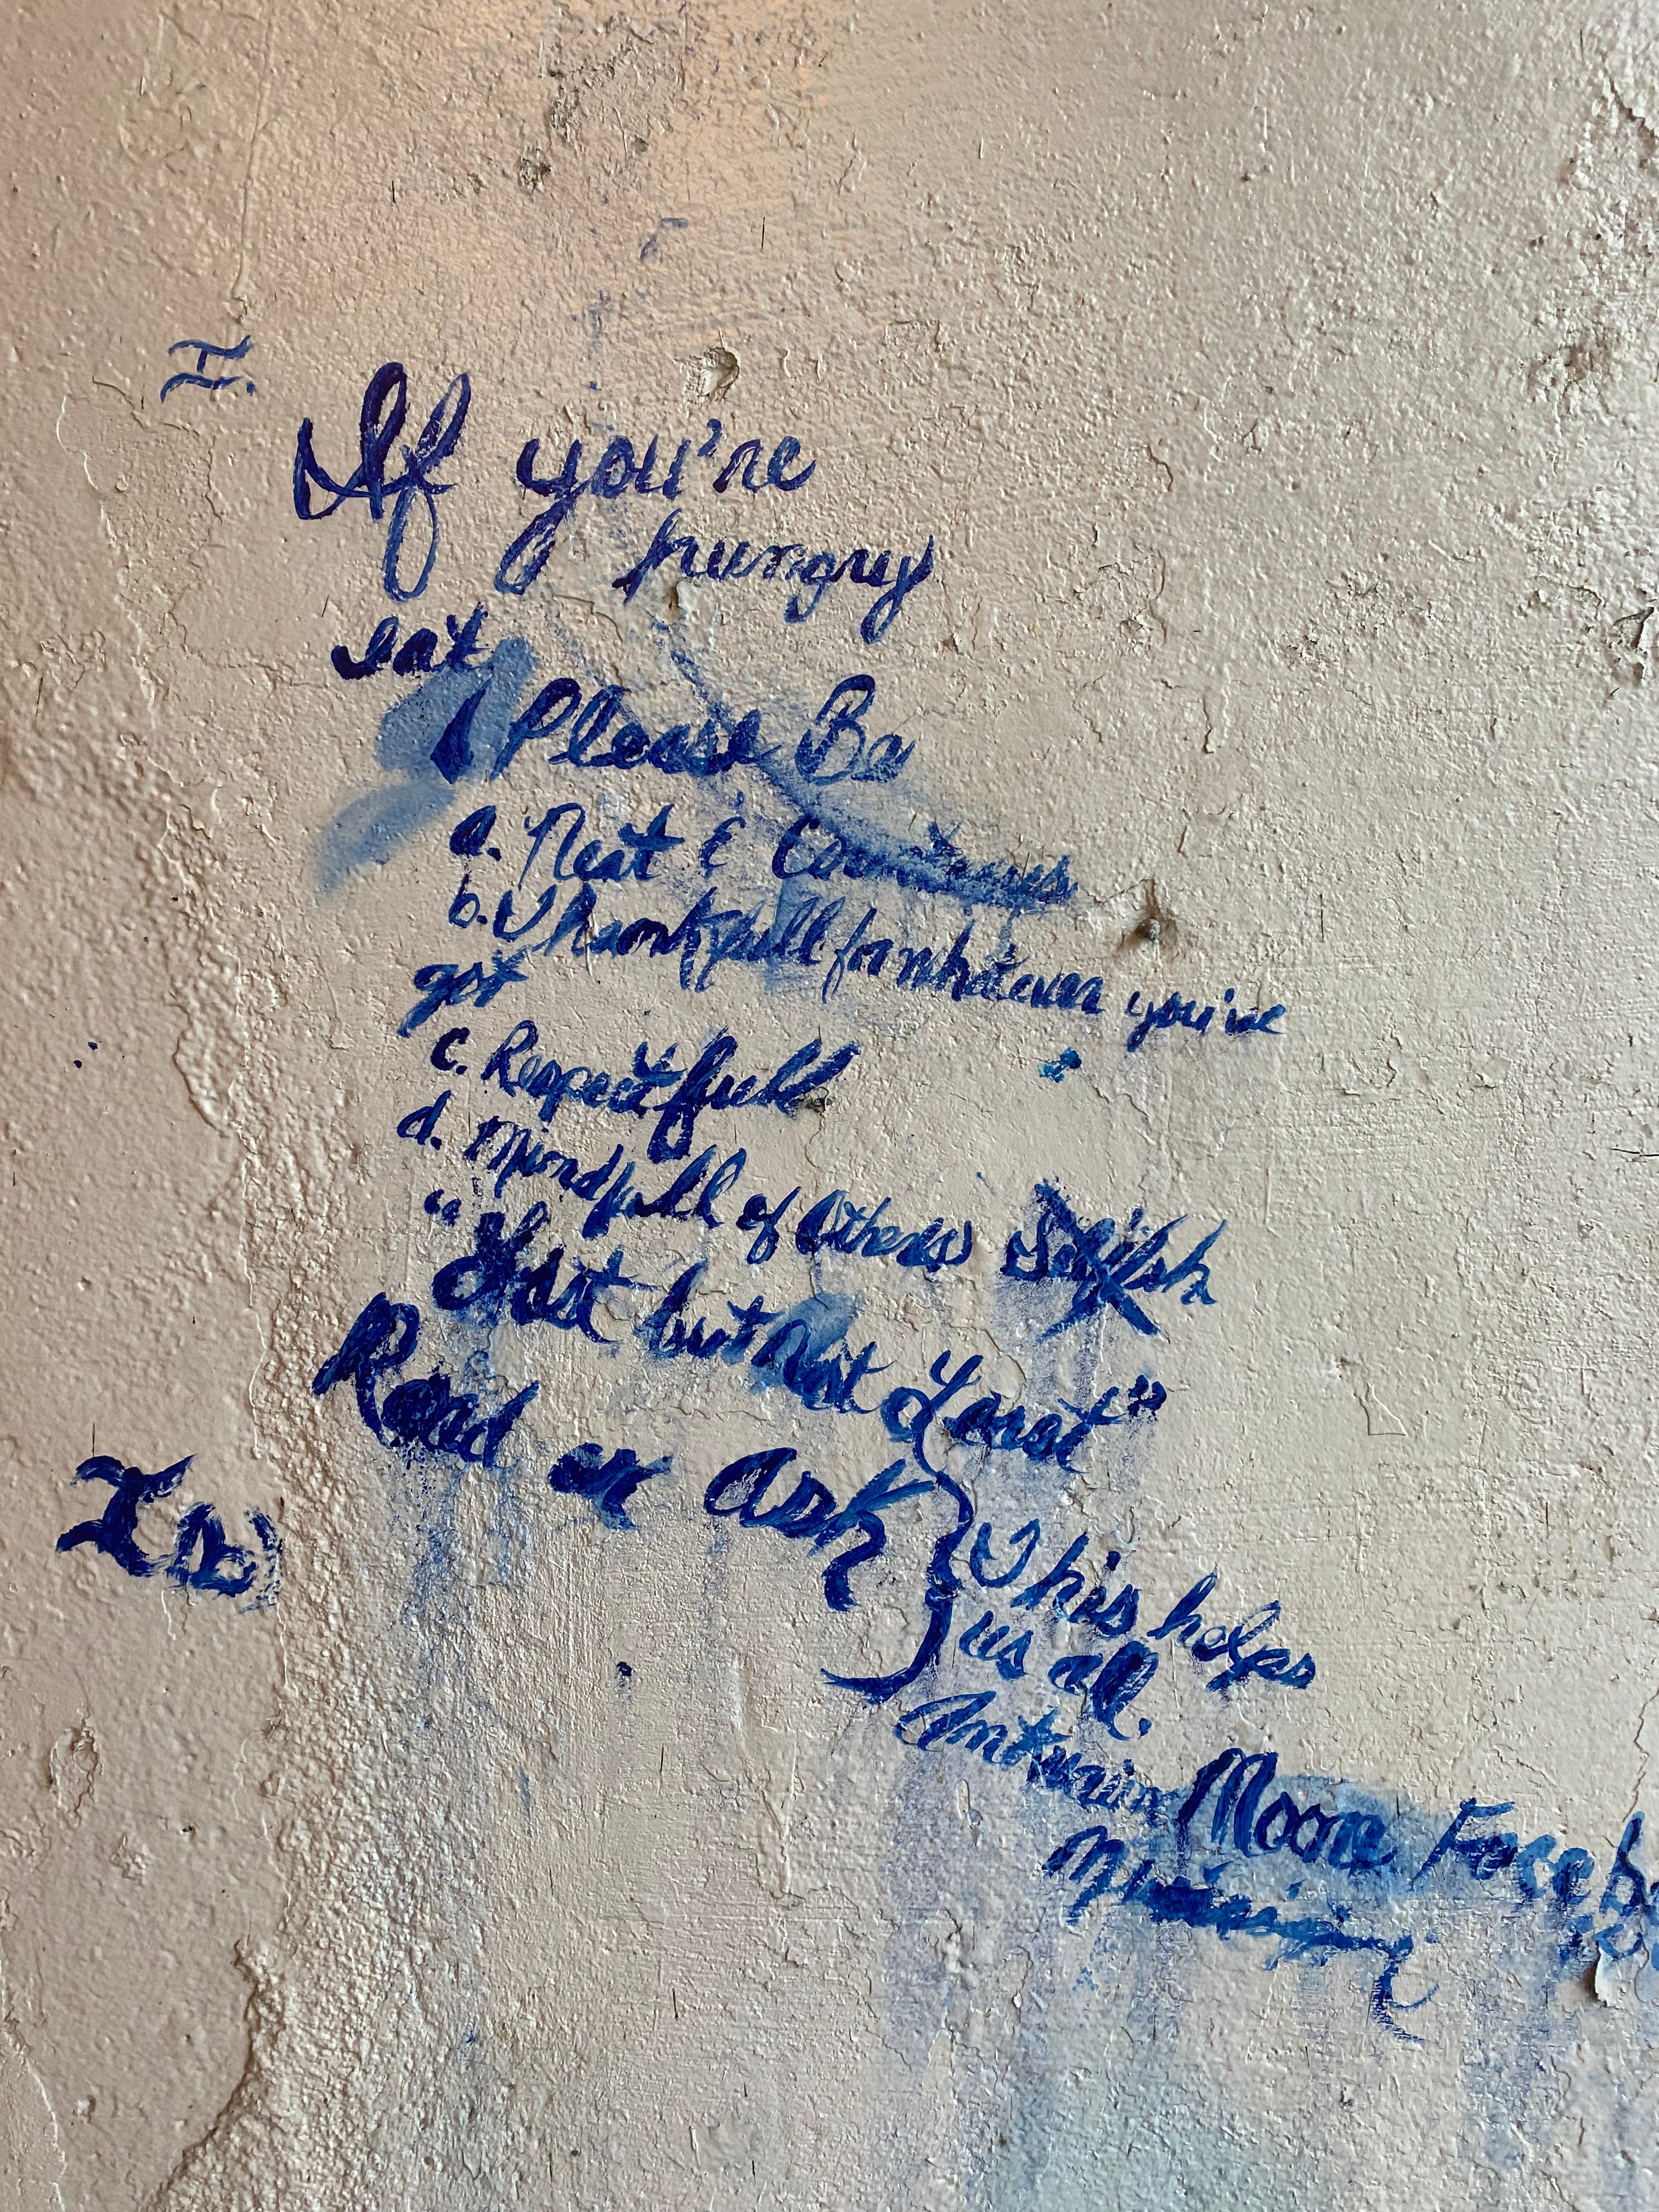 I.
If you're
hungry
eat,
Please Be
a. Neat &
b. Thankfull for whatever you've
got
c. Respectfull
d. Mindfull of Others Selfish
"Last but Not Least"
Read or Ask
This helps
us all.
Antwain Moore Face b